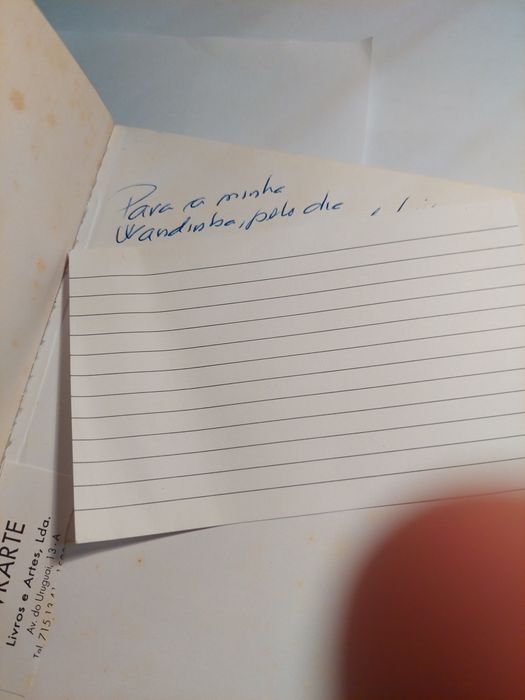 Para a minha
Wandinha, pelo dia
Livros e Artes, Lda.
Av. do Uruguai, 13-A